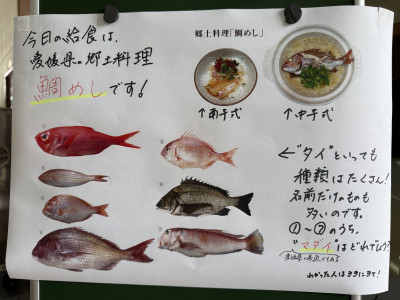 今日の給食は、
愛媛県の郷土料理
鯛めしです!
郷土料理「鯛めし」
↑南予式
↑中予式
←"タイ"といっても
種類はたくさん!
名前だけのものも
多いのです。
①〜⑦のうち、
"マダイ"はどれでしょう?
わかった人はききにきて!